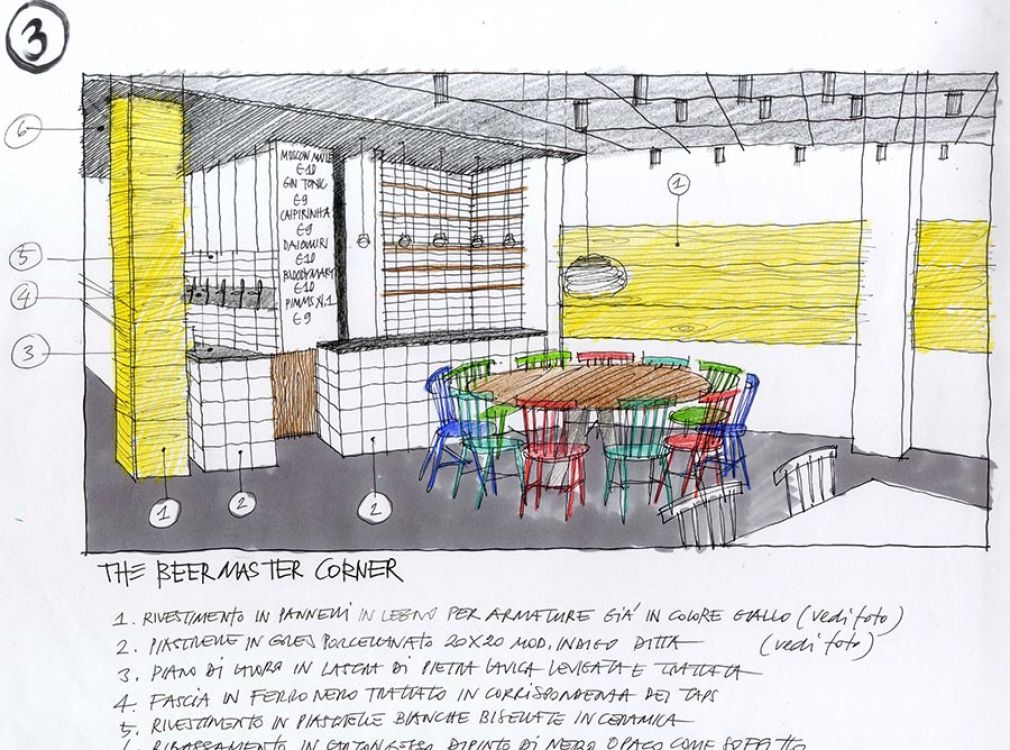 3
6
5
4
3
1
2
2
1
MOSCOW MULE
€10
GIN TONIC
€9
CAIPIRINHA
€9
DAIQUIRI
€10
BLOODY MARY
€10
PIMMS N.1
€9
THE BEERMASTER CORNER
1. RIVESTIMENTO IN PANNELLI IN LEGNO PER ARMATURE GIÀ IN COLORE GIALLO (vedi foto)
2. PIASTRELLE IN GRES PORCELLANATO 20X20 MOD. INDIGO DITTA (vedi foto)
3. PIANO DI LAVORO IN LASTRA DI PIETRA LAVICA LEVIGATA E TRATTATA
4. FASCIA IN FERRO NERO TRATTATO IN CORRISPONDENZA DEI TAPS
5. RIVESTIMENTO IN PIASTRELLE BIANCHE BISELLATE IN CERAMICA
6. RIBASSAMENTO IN CARTONGESSO DIPINTO DI NERO OPACO COME SOFFITTO